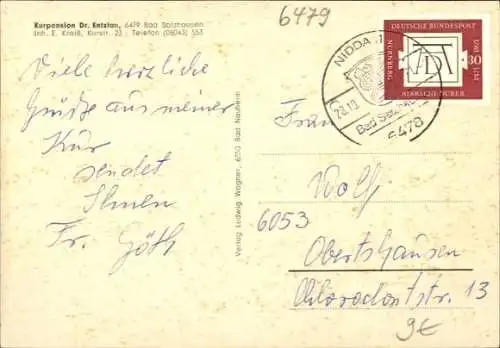 Kurpension Dr. Entzian, 6479 Bad Salzhausen
Inh. E. Kreiß, Kurstr. 23 · Telefon (06043) 553
6479
Viele herzliche
Grüße aus meiner
Kur
sendet
Ihnen
Fr. Göth
Verlag Ludwig Wagner, 6350 Bad Nauheim
NIDDA 1
Bad Salzhausen
6478
DEUTSCHE BUNDESPOST
NÜRNBERG
AD
30
1471 1971
ALBRECHT DÜRER
Frau
Wolf
6053
Obertshausen
Chlorodontstr. 13
9€